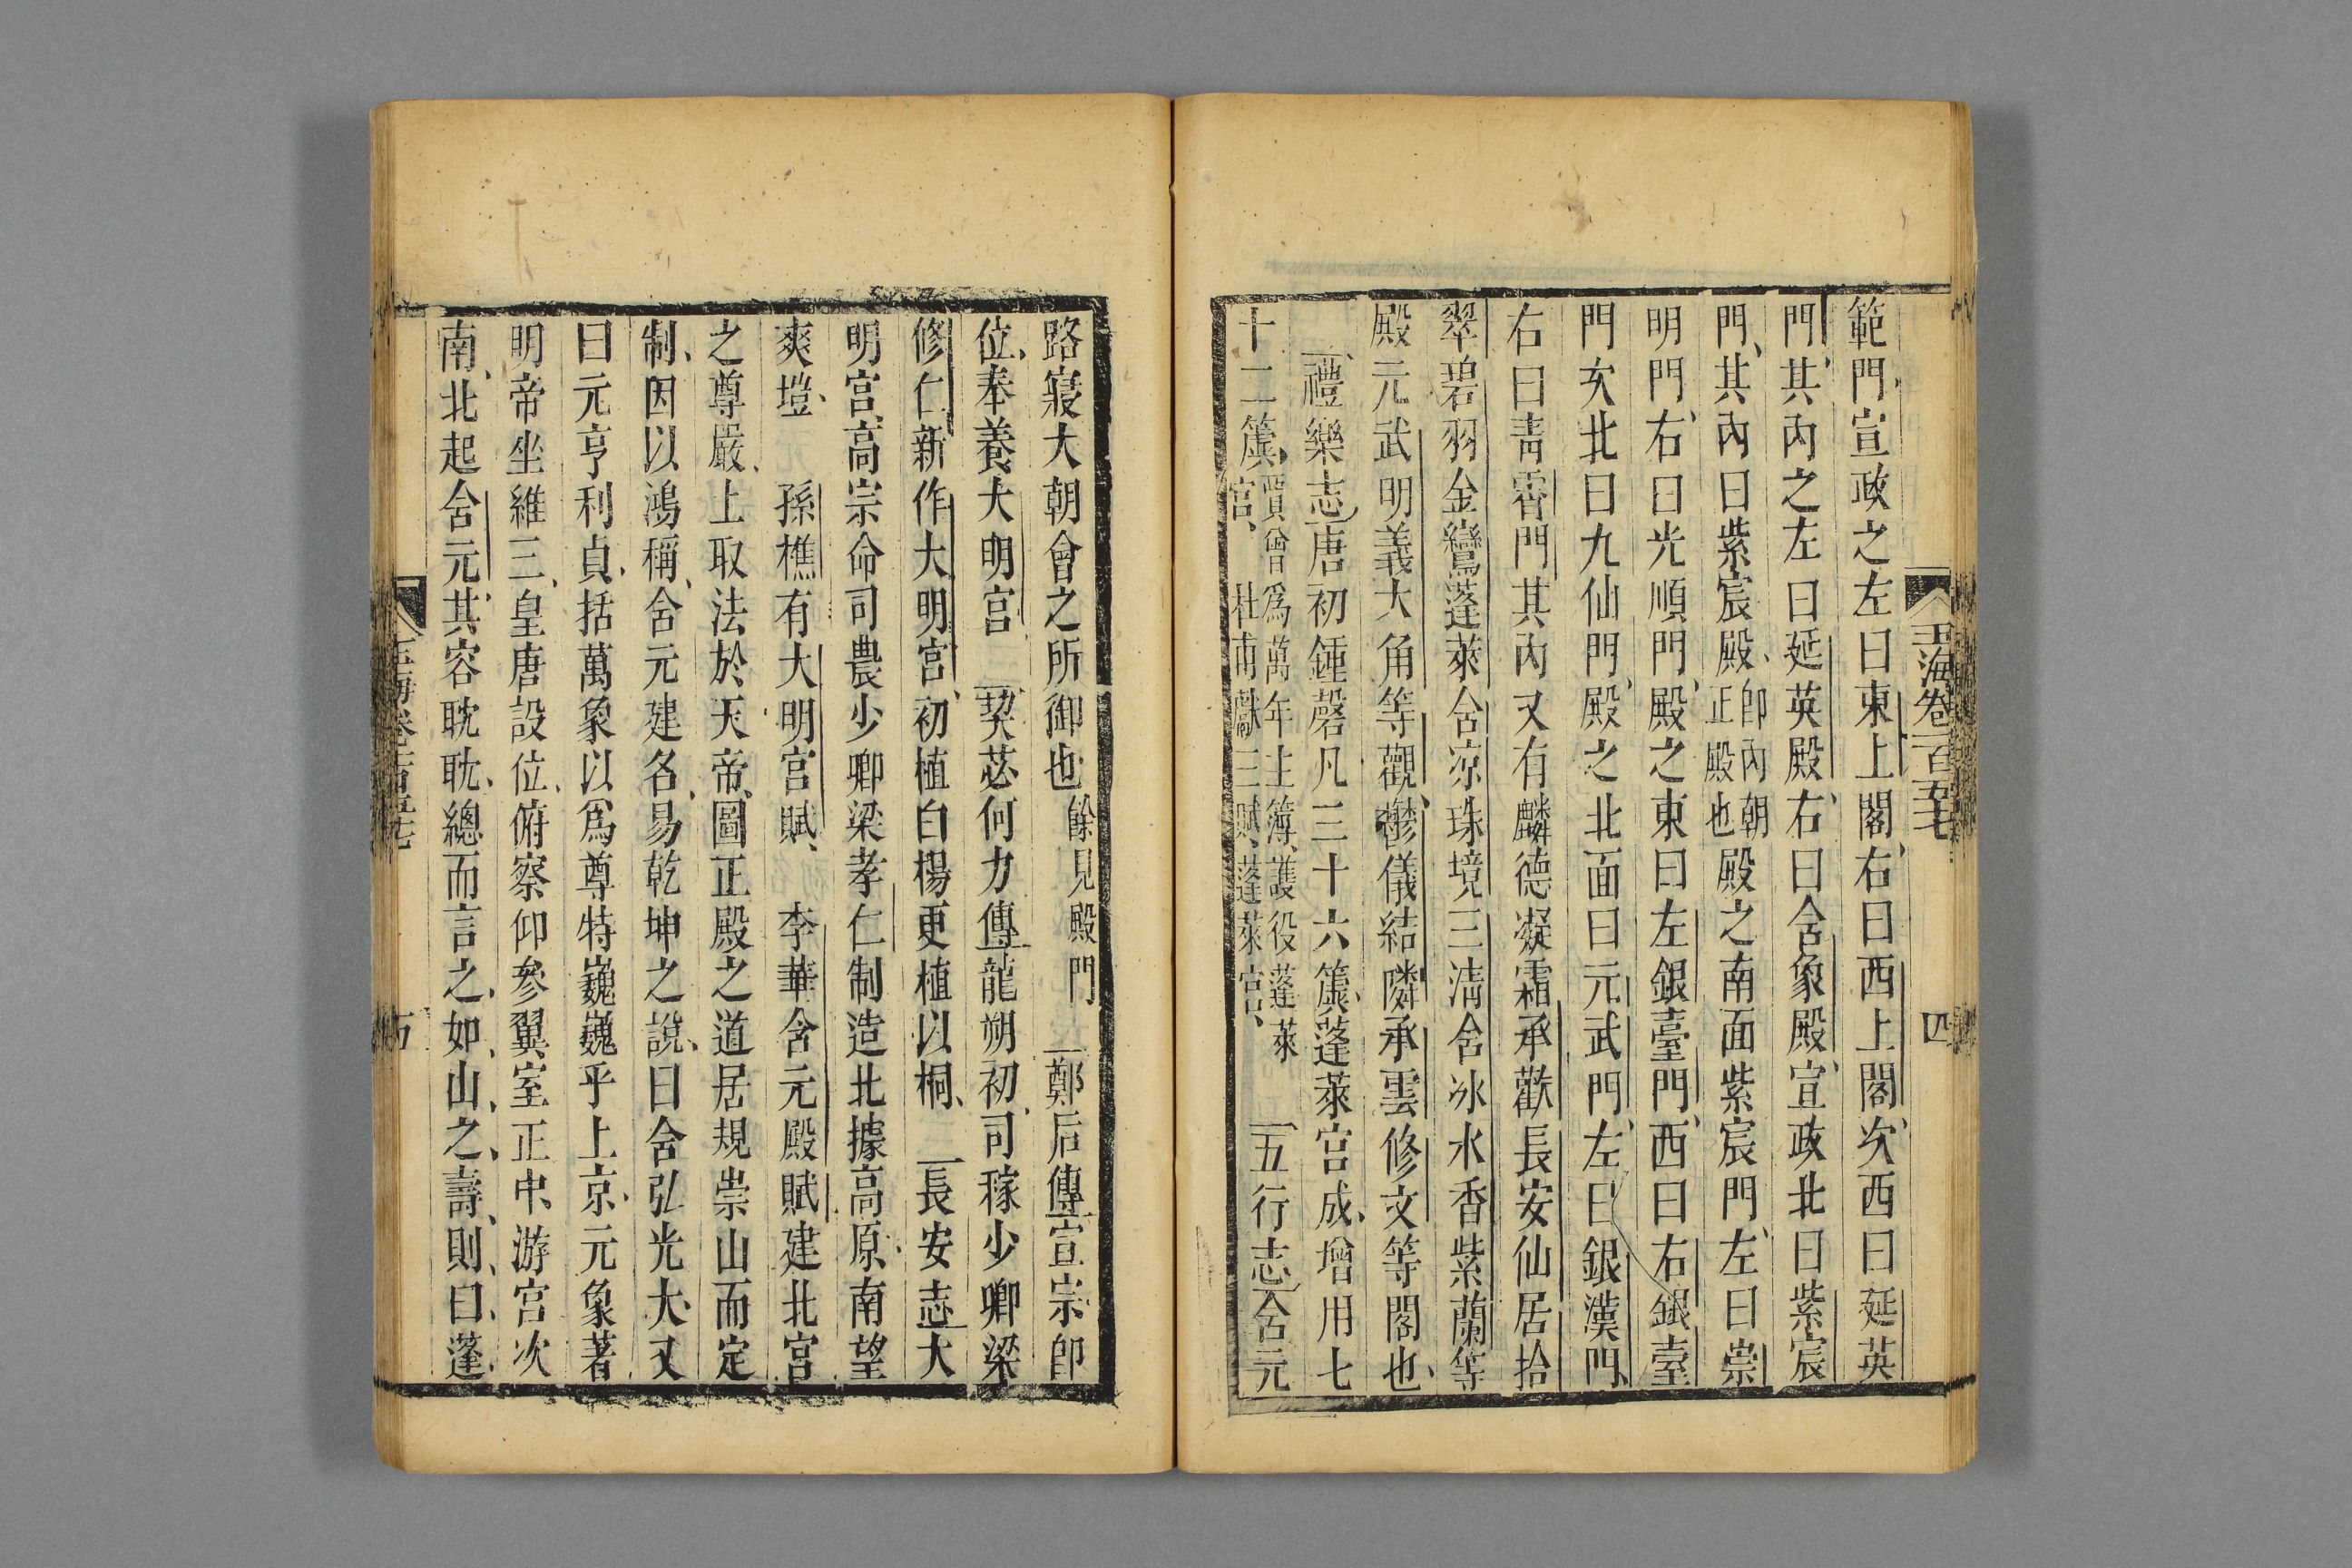 玉海卷一百五十七 四
範門宣政之左曰東上閤右曰西上閤次西曰延英
門其內之左曰延英殿右曰含象殿宣政北曰紫宸
門其內曰紫宸殿卽內朝正殿也殿之南面紫宸門左曰崇
明門右曰光順門殿之東曰左銀臺門西曰右銀臺
門次北曰九仙門殿之北面曰元武門左曰銀漢門
右曰青霄門其內又有麟德凝霜承歡長安仙居拾
翠碧羽金鑾蓬萊含凉珠境三清含冰水香紫蘭等
殿元武明義大角等觀鬱儀結隣承雲修文等閣也
禮樂志唐初鍾磬凡三十六簴蓬萊宮成增用七
十二簴賈曾爲萬年主簿護役蓬萊宮杜甫獻三賦蓬萊宮五行志含元
路寢大朝會之所御也餘見殿門鄭后傳宣宗卽
位奉養大明宮 契苾何力傳龍朔初司稼少卿梁
修仁新作大明宮初植白楊更植以桐 長安志大
明宮高宗命司農少卿梁孝仁制造北據高原南望
爽塏 孫樵有大明宮賦 李華含元殿賦建北宮
之尊嚴上取法於天帝圖正殿之道居規崇山而定
制因以鴻稱含元建名易乾坤之說曰含弘光大又
曰元亨利貞括萬象以爲尊特巍巍乎上京元象著
明帝坐維三皇唐設位俯察仰參翼室正中游宮次
南北起含元其容耽耽總而言之如山之壽則曰蓬
玉海卷一百五十七 五